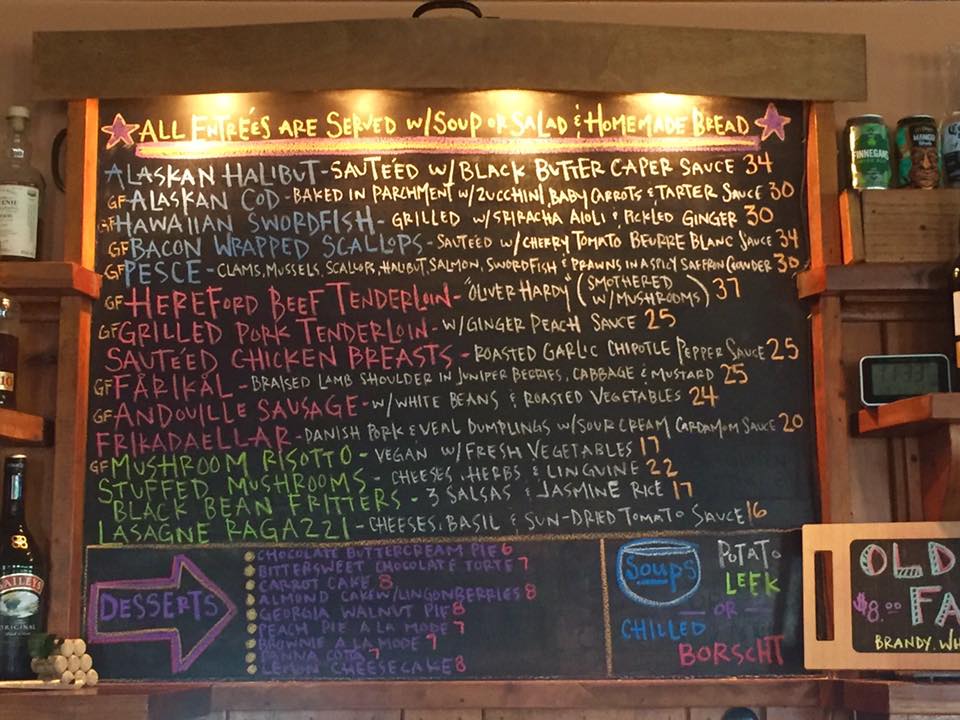 ALL ENTRÉES ARE SERVED W/SOUP OR SALAD & HOMEMADE BREAD
ALASKAN HALIBUT - SAUTÉED W/ BLACK BUTTER CAPER SAUCE 34
GF ALASKAN COD - BAKED IN PARCHMENT W/ZUCCHINI, BABY CARROTS & TARTER SAUCE 30
GF HAWAIIAN SWORDFISH - GRILLED W/SRIRACHA AIOLI & PICKLED GINGER 30
GF BACON WRAPPED SCALLOPS - SAUTÉED W/CHERRY TOMATO BEURRE BLANC SAUCE 34
GF PESCE - CLAMS, MUSSELS, SCALLOPS, HALIBUT, SALMON, SWORDFISH & PRAWNS IN A SPICY SAFFRON CHOWDER 30
GF HEREFORD BEEF TENDERLOIN - "OLIVER HARDY" (SMOTHERED W/MUSHROOMS) 37
GF GRILLED PORK TENDERLOIN - W/GINGER PEACH SAUCE 25
SAUTÉED CHICKEN BREASTS - ROASTED GARLIC CHIPOTLE PEPPER SAUCE 25
GF FÅRIKÅL - BRAISED LAMB SHOULDER IN JUNIPER BERRIES, CABBAGE & MUSTARD 25
GF ANDOUILLE SAUSAGE - W/WHITE BEANS & ROASTED VEGETABLES 24
FRIKADAELLAR - DANISH PORK & VEAL DUMPLINGS W/SOUR CREAM CARDAMOM SAUCE 20
GF MUSHROOM RISOTTO - VEGAN W/FRESH VEGETABLES 17
STUFFED MUSHROOMS - CHEESES, HERBS & LINGUINE 22
BLACK BEAN FRITTERS - 3 SALSAS & JASMINE RICE 17
LASAGNE RAGAZZI - CHEESES, BASIL & SUN-DRIED TOMATO SAUCE 16
DESSERTS
CHOCOLATE BUTTERCREAM PIE 6
BITTERSWEET CHOCOLATE TORTE 7
CARROT CAKE 8
ALMOND CAKE W/LINGONBERRIES 8
GEORGIA WALNUT PIE 8
PEACH PIE A LA MODE 7
BROWNIE A LA MODE 7
PANNA COTA 7
LEMON CHEESECAKE 8
SOUPS
POTATO
LEEK
OR
CHILLED
BORSCHT
OLD
$8.00 FA
BRANDY. WH
FINNEGANS
MANGO
BAILEYS
ORIGINAL